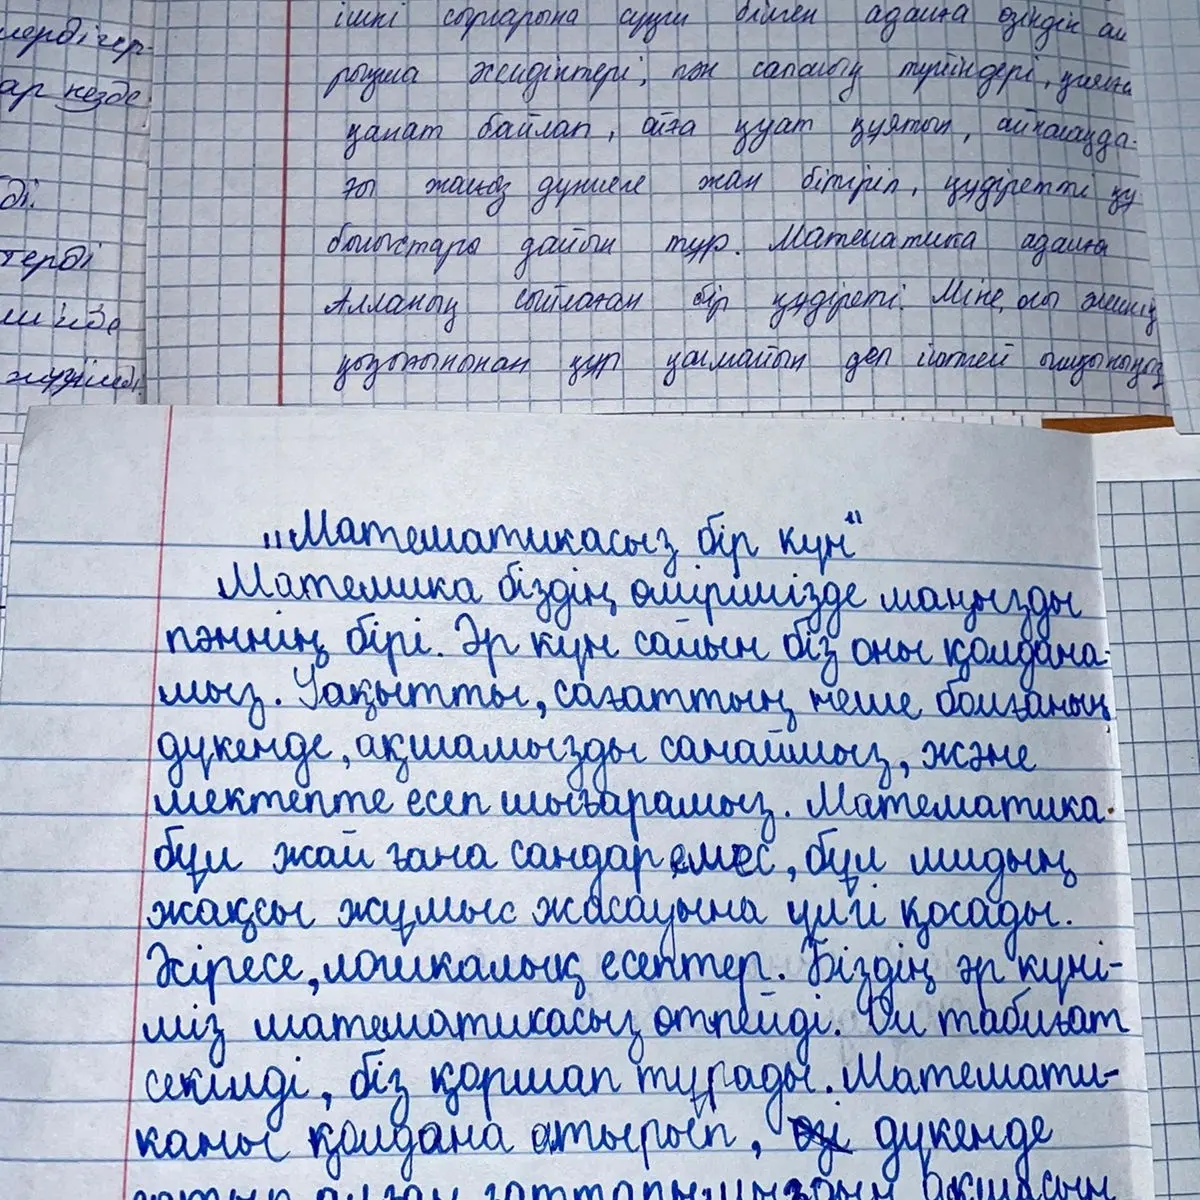 лерді гер-
ар кезде
ді.
терді
ішкі сырларына сүңги білген адамға өзіндік ал
рықша жеңілдіктері, пән сапалық түйіндері, қиялға
қанат байлап, ойға қуат құятын, айналаңда-
ғы жансыз дүниеге жан бітіріп, құдіретті құ
былыстары дайын тұр. Математика адамға
Алланың сыйлаған бір құдіреті. Міне, осы
құр қалмайын деп
„Математикасыз бір күн“
Матемика біздің өмірімізде маңызды
пәннің бірі. Әр күн сайын біз оны қолдана-
мыз. Уақытты, сағаттың неше болғаның
дүкенде, ақшамызды санаймыз, және
мектепте есеп шығарамыз. Математика
бұл жай ғана сандар емес, бұл мидың
жақсы жұмыс жасауына үлгі қосады.
Әсіресе, логикалық есептер. Біздің әр күні-
міз математикасыз өтпейді. Ол табиғат
секілді, біз қоршап тұрады. Математи-
каны қолдана отырып, дүкенде
сатып алған заттарымыздың бағасын